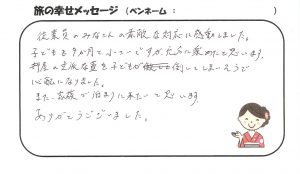 旅の幸せメッセージ (ペンネーム： )
従業員のみなさんの素敵な対応に感動しました。
子どもを9か月と小さいですが、大方に褒めたと思います。
部屋の空気清浄を子どもが倒してしまいそうで
心配になりました。
また、家族で泊まりに来たいと思います。
ありがとうございました。